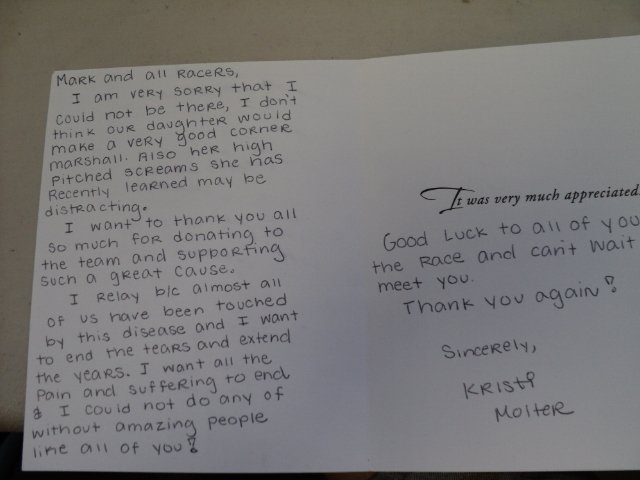 Mark and all Racers,
I am very sorry that I
could not be there, I don't
think our daughter would
make a very good corner
marshall. Also her high
pitched screams she has
recently learned may be
distracting.
I want to thank you all
so much for donating to
the team and supporting
such a great cause.
I Relay b/c almost all
of us have been touched
by this disease and I want
to end the tears and extend
the years. I want all the
pain and suffering to end
& I could not do any of
without amazing people
line all of you!
It was very much appreciated.
Good Luck to all of you
the Race and can't wait
meet you.
Thank you again!
Sincerely,
Kristi
Molter